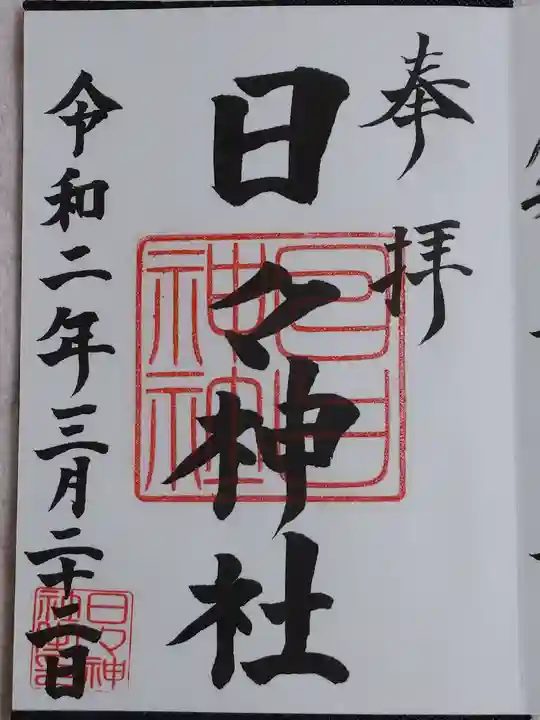 奉拝
日々神社
令和二年三月二十二日
日日神社